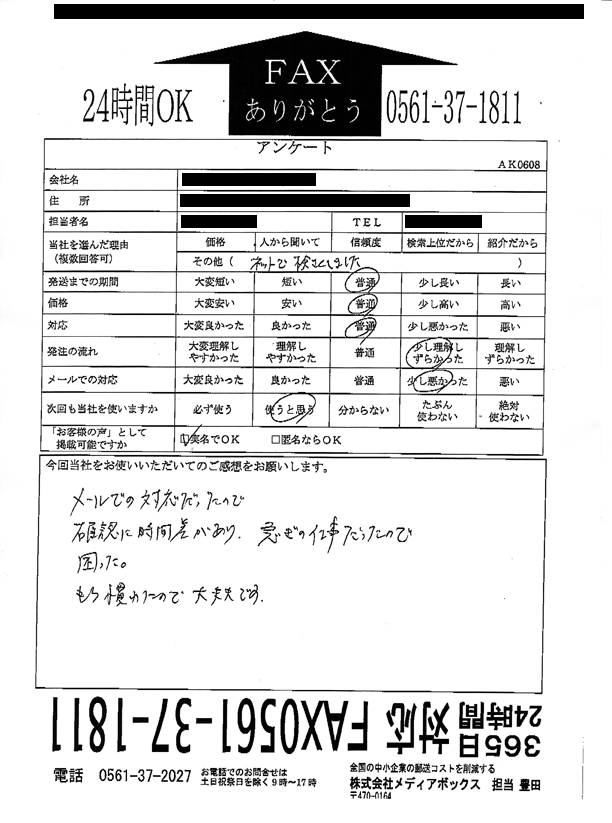 24時間OK
FAX
ありがとう
0561-37-1811
アンケート
AK0608
会社名
住　所
担当者名 TEL
当社を選んだ理由
（複数回答可）
価格 人から聞いて 信頼度 検索上位だから 紹介だから
その他（ ネットで検さくしました ）
発送までの期間 大変短い 短い 普通 少し長い 長い
価格 大変安い 安い 普通 少し高い 高い
対応 大変良かった 良かった 普通 少し悪かった 悪い
発注の流れ 大変理解しやすかった 理解しやすかった 普通 少し理解しずらかった 理解しずらかった
メールでの対応 大変良かった 良かった 普通 少し悪かった 悪い
次回も当社を使いますか 必ず使う 使うと思う 分からない たぶん使わない 絶対使わない
「お客様の声」として
掲載可能ですか
□実名でOK □匿名ならOK
今回当社をお使いいただいてのご感想をお願いします。
メールでの対応だったので
確認に時間差があり、急ぎの仕事だったので
困った。
もう慣れたので大丈夫です。
365日
24時間
対応 FAX0561-37-1811
電話 0561-37-2027
お電話でのお問合せは
土日祝祭日を除く9時～17時
全国の中小企業の郵送コストを削減する
株式会社メディアボックス 担当 豊田
〒470-0164